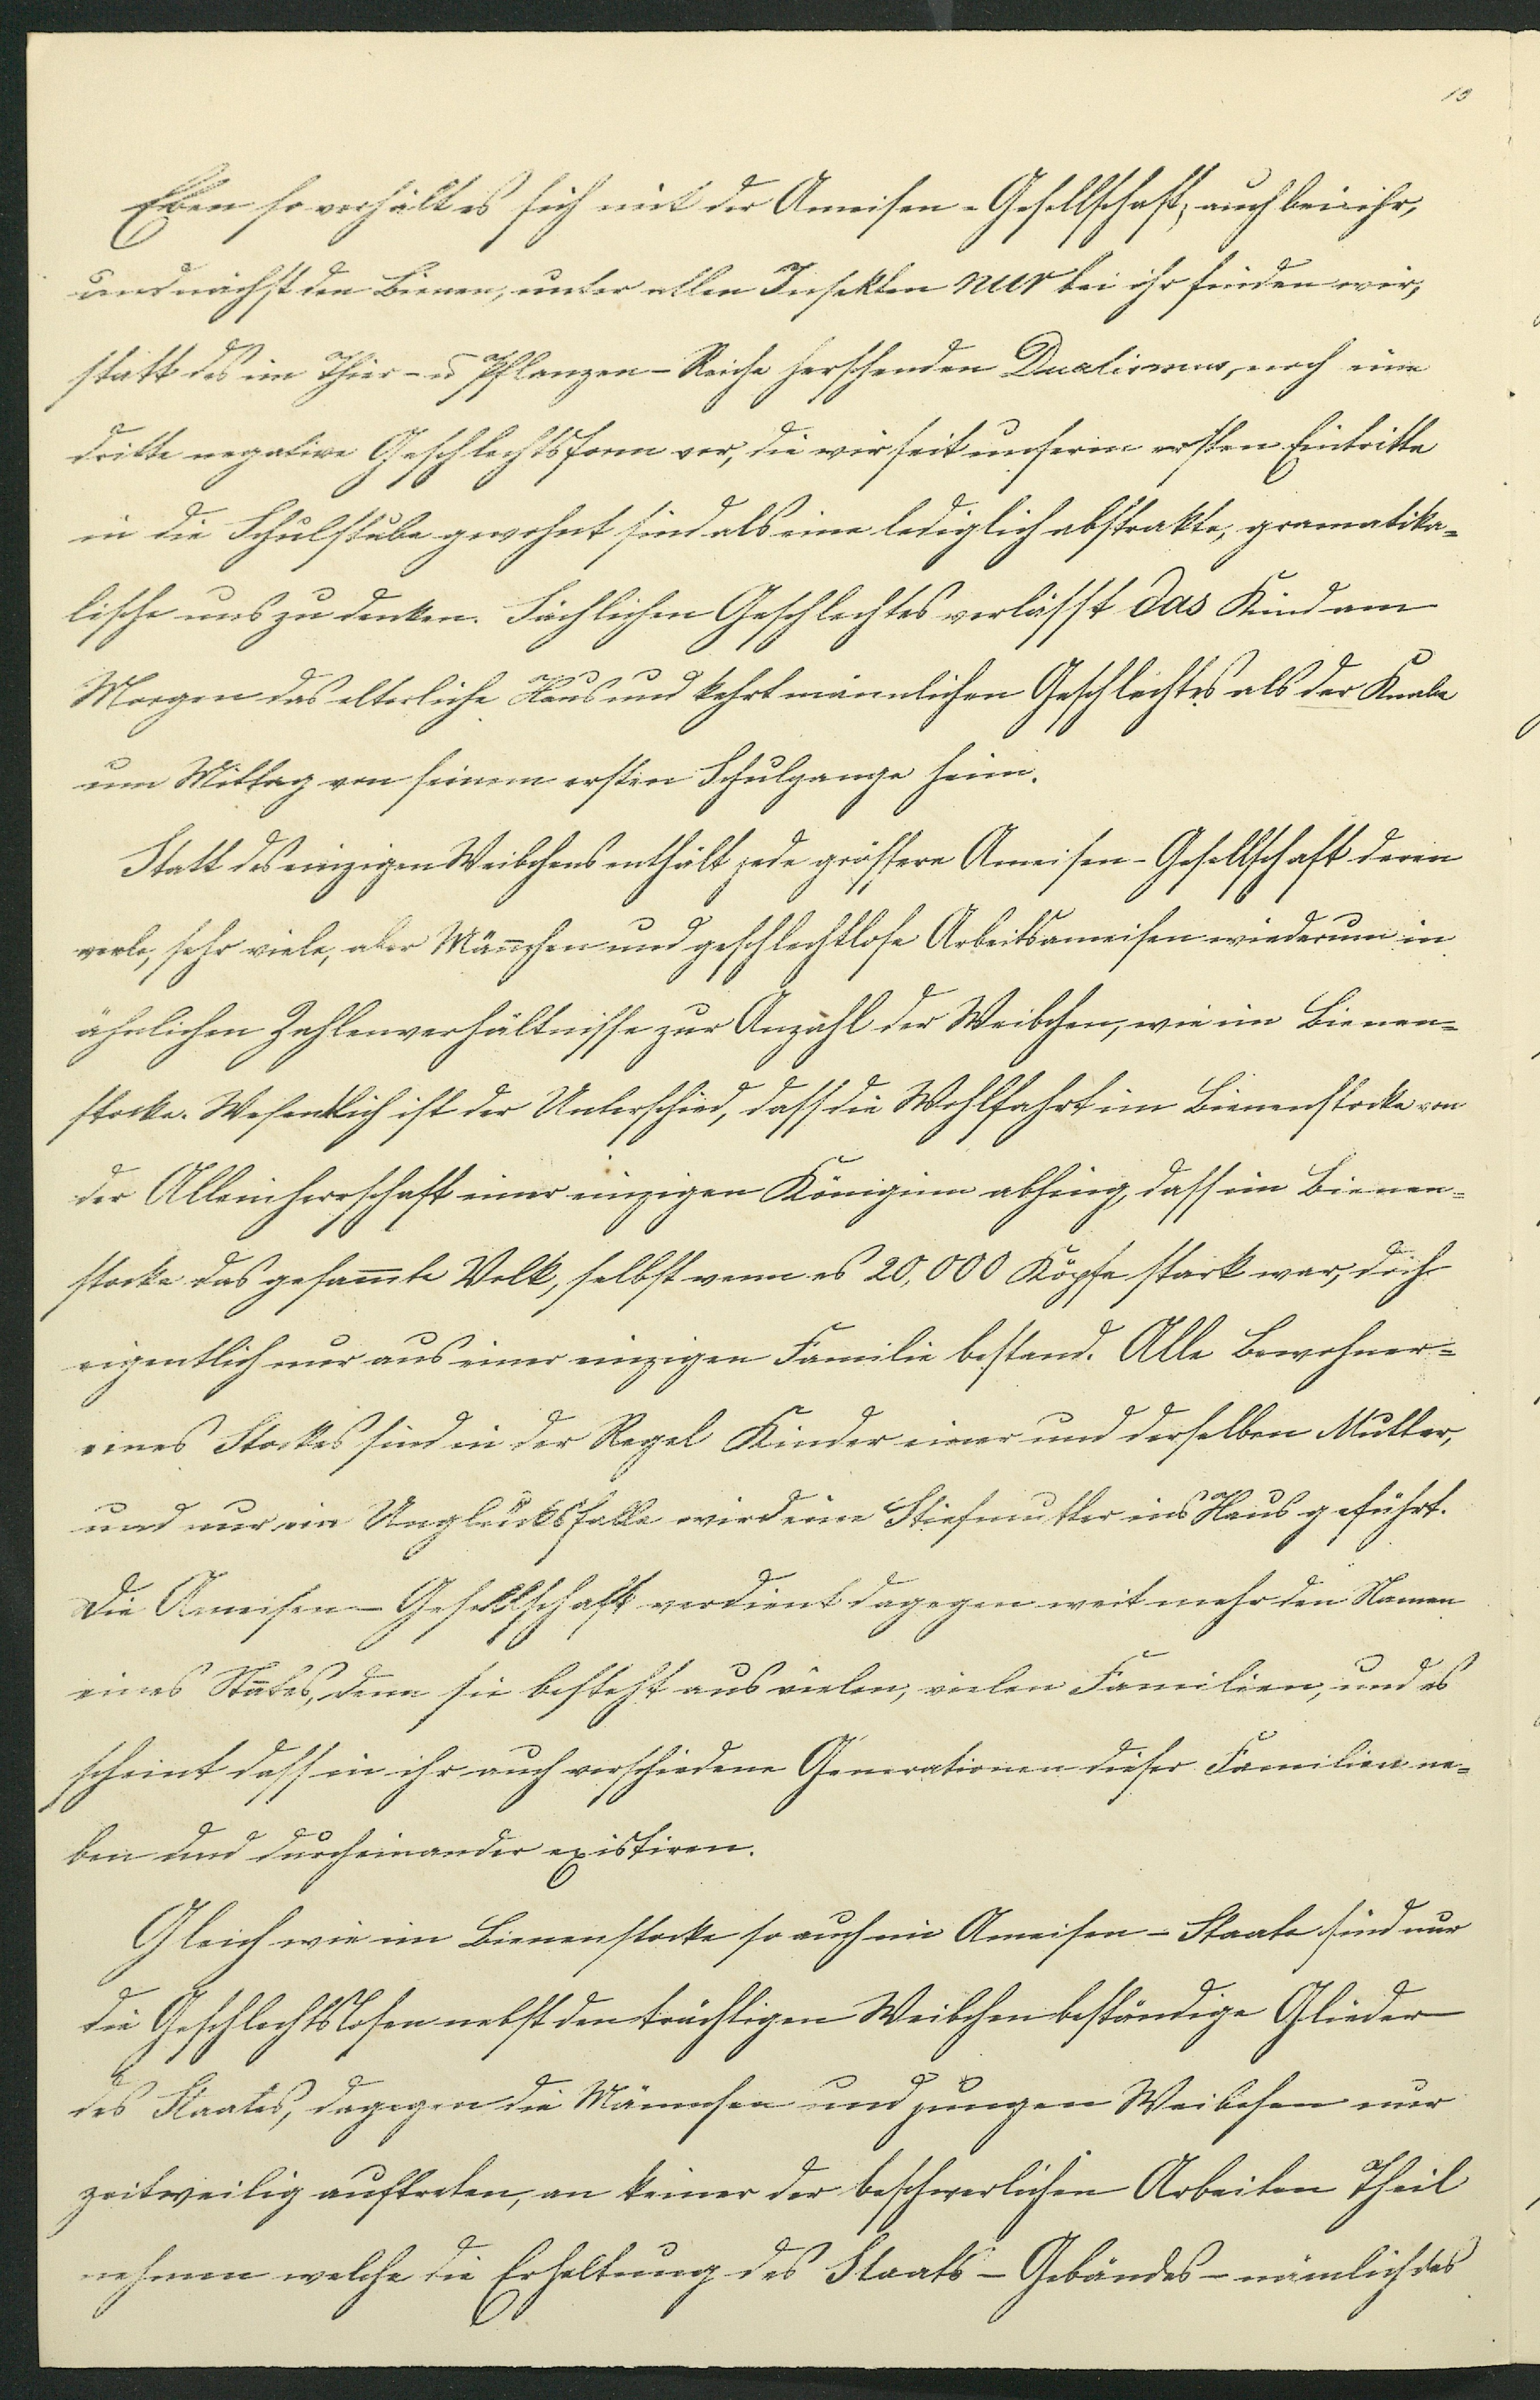 10
Eben so verhält es sich mit der Ameisen-Gesellschaft, auch bei ihr,
und nächst den Bienen, unter allen Insekten nur bei ihr finden wir,
statt des im Thier- u Pflanzen-Reiche herschenden Dualismus, noch eine
dritte negative Geschlechtsform vor, die wir seit unserm ersten Eintritte
in die Schulstube gewohnt sind als eine lediglich abstrakte, gramatika-
lische uns zu denken. Sächlichen Geschlechtes verlässt das Kind am
Morgen das elterliche Haus und kehrt männlichen Geschlechtes als der Knabe
um Mittag von seinem ersten Schulgange heim.
Statt des einzigen Weibchens enthält jede grössere Ameisen-Gesellschaft deren
viele, sehr viele, aber Männchen und geschlechtlose Arbeitsameisen wiederum in
ähnlichen Zahlenverhältnisse zur Anzahl der Weibchen, wie im Bienen-
stocke. Wesentlich ist der Unterschied, dass die Wohlfahrt im Bienenstocke von
der Alleinherrschaft einer einzigen Königinn abhing, dass im Bienen-
stocke das gesam̄te Volk, selbst wenn es 20,000 Köpfe stark war, doch
eigentlich nur aus einer einzigen Familie bestand. Alle Bewohner-
eines Stockes sind in der Regel Kinder einer und derselben Mutter,
und nur im Unglücksfalle wird eine Stiefmutter ins Haus geführt.
Die Ameisen-Gesellschaft verdient dagegen weit mehr den Namen
eines Staates, denn sie besteht aus vielen, vielen Familien, und es
scheint dass in ihr auch verschiedene Generationen dieser Familien ne-
ben und durcheinander existiren.
Gleich wie im Bienenstocke so auch im Ameisen-Staate sind nur
die Geschlechtslosen nebst den trächtigen Weibchen beständige Glieder
des Staates, dagegen die Männchen und jungen Weibchen nur
zeitweilig auftreten, an keiner der beschwerlichen Arbeiten Theil
nehmen welche die Erhaltung des Staats-Gebäudes - nämlich des